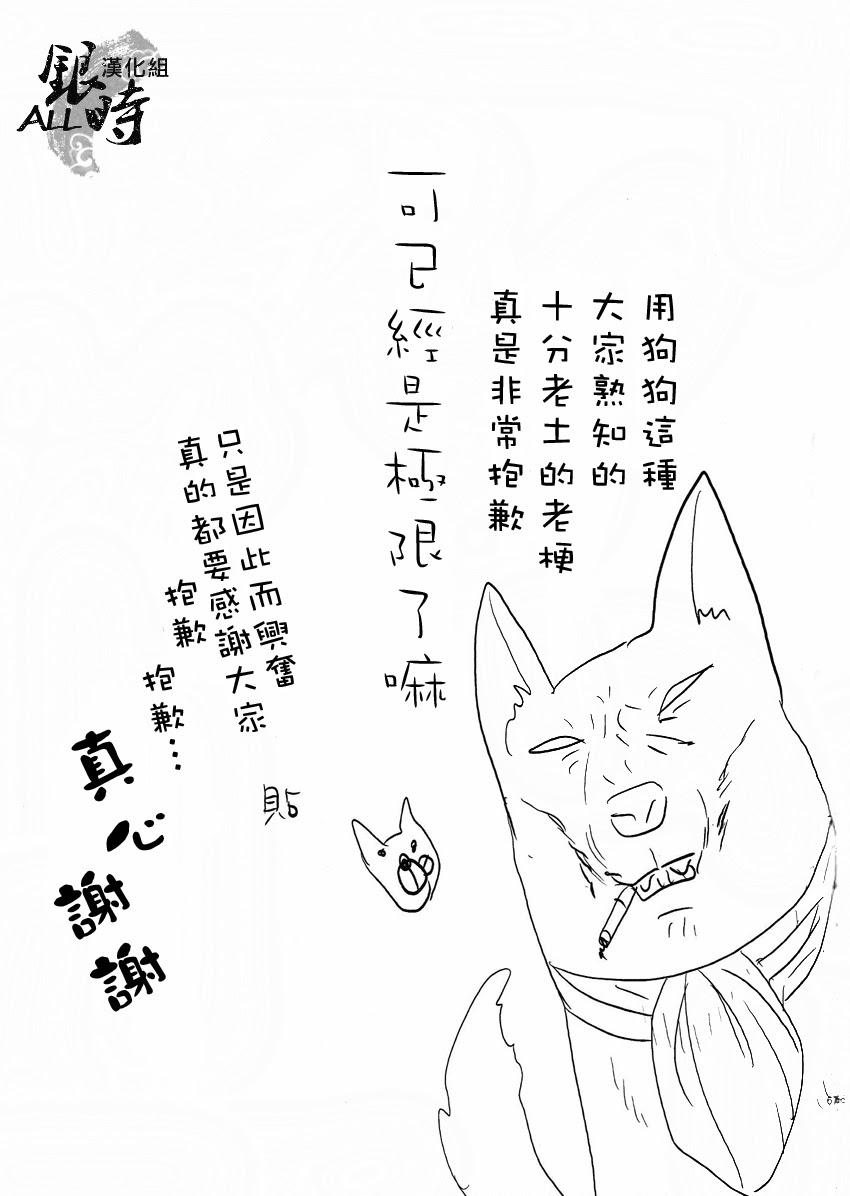 漢化組
銀時
ALL
用狗狗這種
大家熟知的
十分老土的老梗
真是非常抱歉
可已經是極限了嘛
只是因此而興奮
真的都要感謝大家
抱歉
抱歉…
真心謝謝
貼